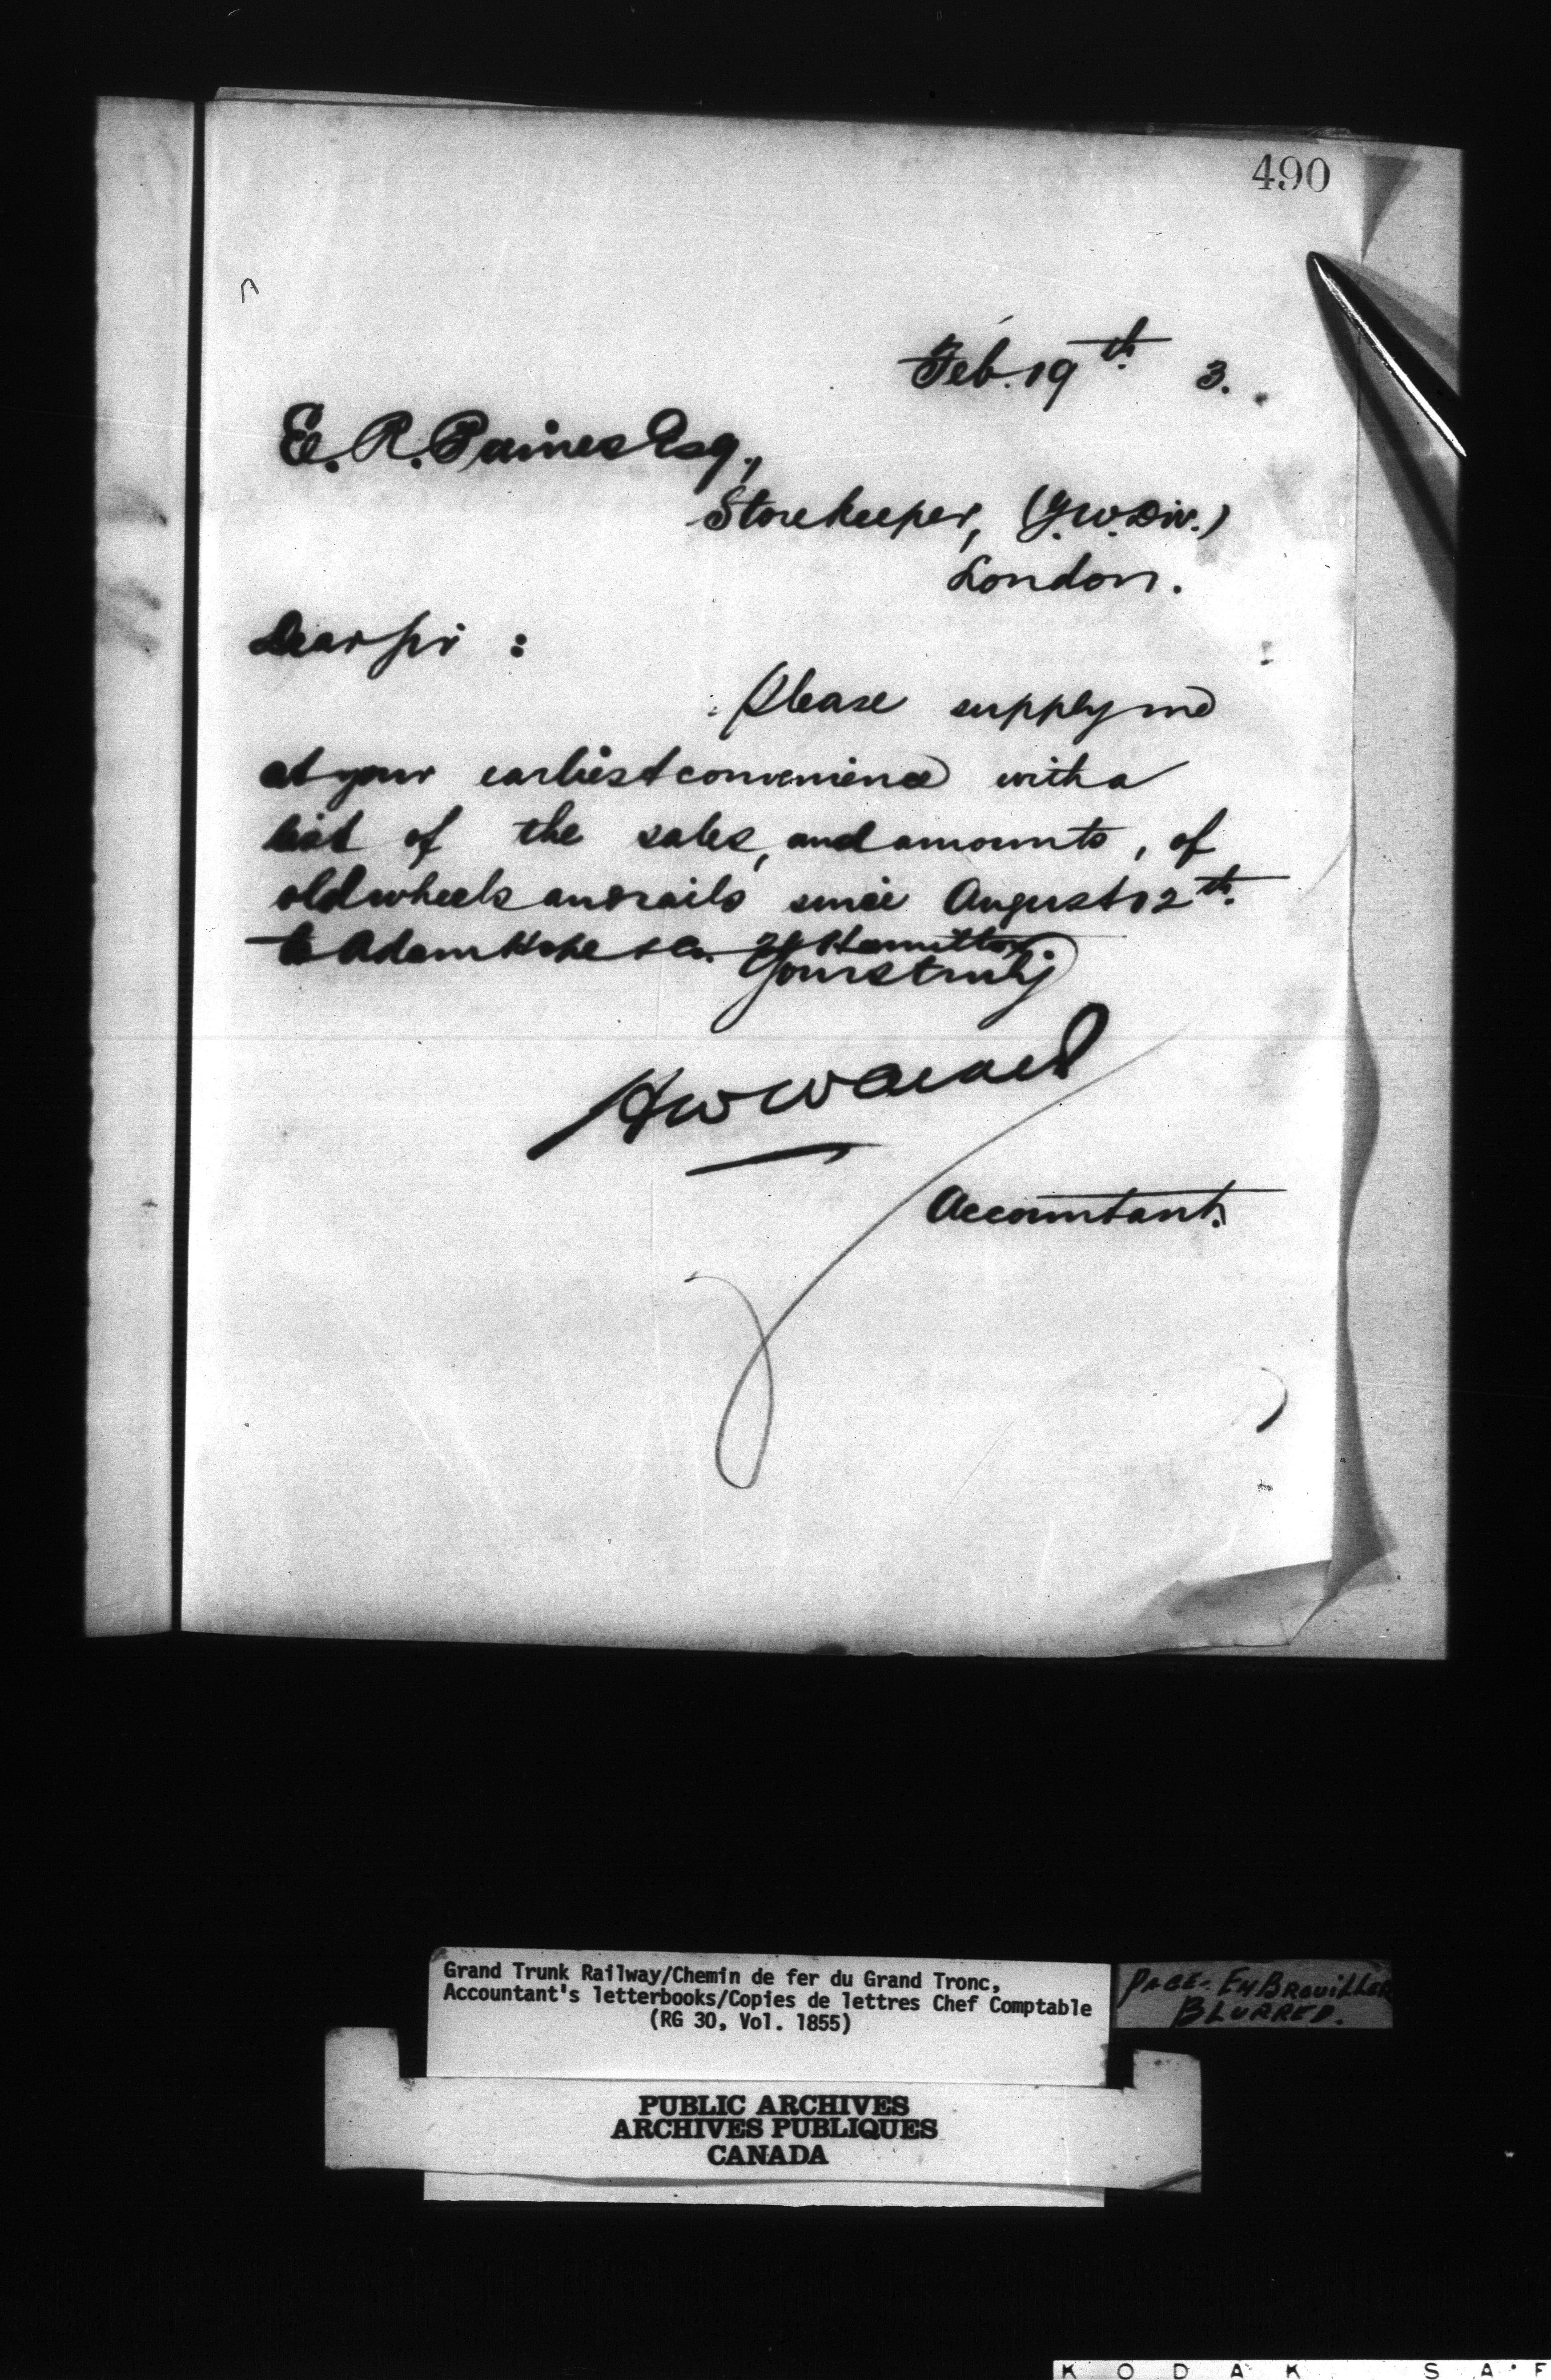 490
Feb. 19th 3.
E. R. Paines Esq.,
Storekeeper, (G.W. Div.)
London.
Dear Sir :
Please supply me
at your earliest convenience with a
list of the sales, and amounts, of
old wheels and rails since August 12th.
to Adam Hope & Co. of Hamilton
Yours truly
H W Walker
Accountant.
Grand Trunk Railway/Chemin de fer du Grand Tronc,
Accountant's letterbooks/Copies de lettres Chef Comptable
(RG 30, Vol. 1855)
PAGE- EMBROUILLER
BLURRED.
PUBLIC ARCHIVES
ARCHIVES PUBLIQUES
CANADA
KODAK SAF